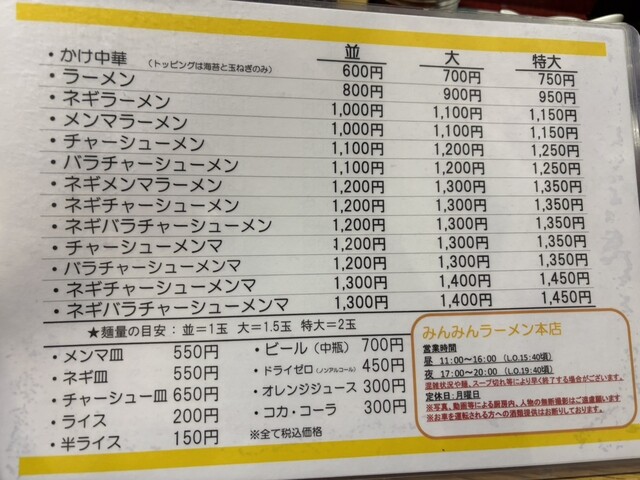 並 大 特大
・かけ中華 （トッピングは海苔と玉ねぎのみ） 600円 700円 750円
・ラーメン 800円 900円 950円
・ネギラーメン 1,000円 1,100円 1,150円
・メンマラーメン 1,000円 1,100円 1,150円
・チャーシューメン 1,100円 1,200円 1,250円
・バラチャーシューメン 1,100円 1,200円 1,250円
・ネギメンマラーメン 1,200円 1,300円 1,350円
・ネギチャーシューメン 1,200円 1,300円 1,350円
・ネギバラチャーシューメン 1,200円 1,300円 1,350円
・チャーシューメンマ 1,200円 1,300円 1,350円
・バラチャーシューメンマ 1,200円 1,300円 1,350円
・ネギチャーシューメンマ 1,300円 1,400円 1,450円
・ネギバラチャーシューメンマ 1,300円 1,400円 1,450円
★麺量の目安：並＝1玉 大＝1.5玉 特大＝2玉
・メンマ皿 550円
・ネギ皿 550円
・チャーシュー皿 650円
・ライス 200円
・半ライス 150円
・ビール（中瓶） 700円
・ドライゼロ（ノンアルコール） 450円
・オレンジジュース 300円
・コカ・コーラ 300円
※全て税込価格
みんみんラーメン本店
営業時間
昼 11:00～16:00 （L.O.15:40頃）
夜 17:00～20:00 （L.O.19:40頃）
混雑状況や麺、スープ切れ等により早く終了する場合がございます。
定休日：月曜日
※写真、動画等による厨房内、人物の無断撮影はご遠慮願います
※お車を運転される方への酒類提供はお断りしております。